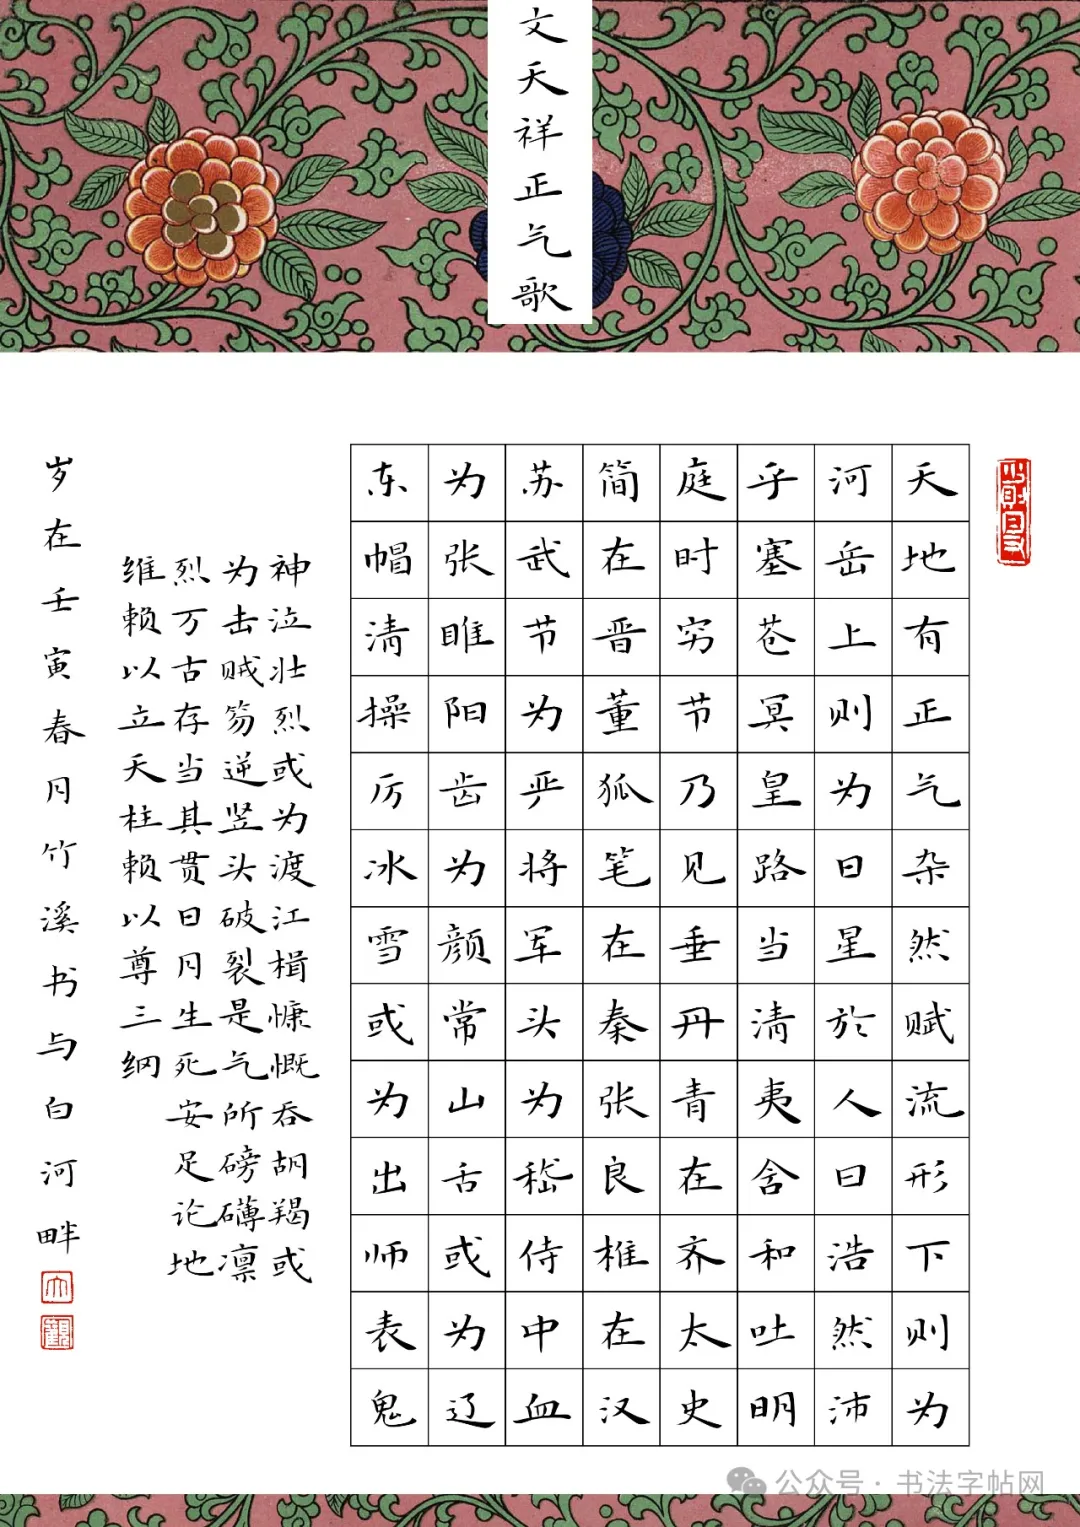 文天祥正气歌
天地有正气杂然赋流形下则为
河岳上则为日星於人曰浩然沛
乎塞苍冥皇路当清夷含和吐明
庭时穷节乃见垂丹青在齐太史
简在晋董狐笔在秦张良椎在汉
苏武节为严将军头为嵇侍中血
为张睢阳齿为颜常山舌或为辽
东帽清操厉冰雪或为出师表鬼
神泣壮烈或为渡江楫慷慨吞胡羯或
为击贼笏逆竖头破裂是气所磅礴凛
烈万古存当其贯日月生死安足论地
维赖以立天柱赖以尊三纲
岁在壬寅春月竹溪书与白河畔
公众号·书法字帖网